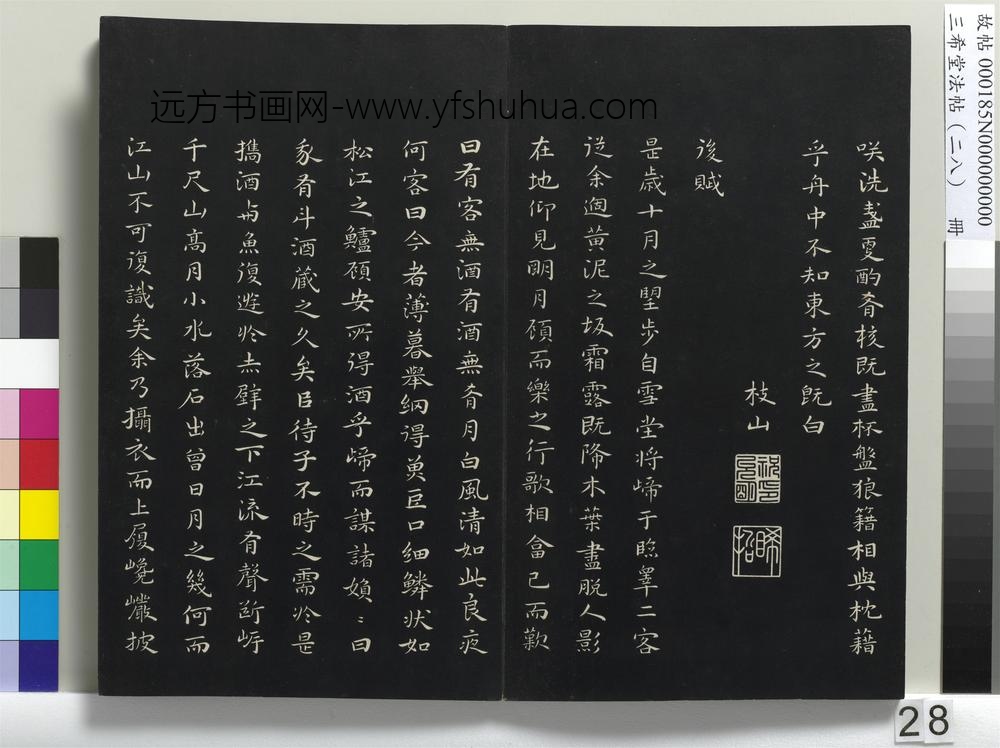 咲洗盞更酌肴核既盡杯盤狼籍相與枕藉
乎舟中不知東方之既白
枝山
後賦
是歲十月之朢步自雪堂将歸于臨皋二客
從余過黄泥之坂霜露既降木葉盡脱人影
在地仰見明月顧而樂之行歌相答已而歎
曰有客無酒有酒無肴月白風清如此良夜
何客曰今者薄暮舉網得魚巨口細鱗状如
松江之鱸顧安所得酒乎歸而謀諸婦〻曰
我有斗酒蔵之久矣以待子不時之需於是
攜酒与魚復遊於赤壁之下江流有聲断岸
千尺山髙月小水落石出曾日月之幾何而
江山不可復識矣余乃攝衣而上履巉巖披
远方书画网-www.yfshuhua.com
故帖 000185N000000000
三希堂法帖（二八） 冊
28